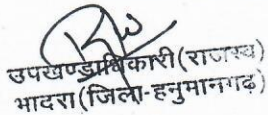 उपखण्डाधिकारी(राजस्व)
भादरा(जिला-हनुमानगढ़)